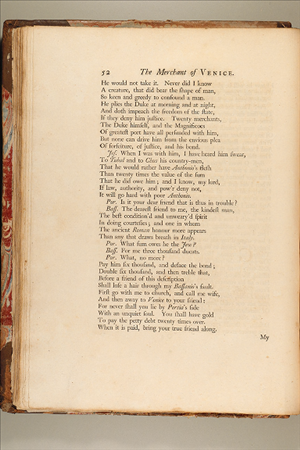 52 The Merchant of VENICE.
He would not take it. Never did I know
A creature, that did bear the shape of man,
So keen and greedy to confound a man.
He plies the Duke at morning and at night,
And doth impeach the freedom of the state,
If they deny him justice. Twenty merchants,
The Duke himself, and the Magnificoes
Of greatest port have all persuaded with him,
But none can drive him from the envious plea
Of forfeiture, of justice, and his bond.
Jes. When I was with him, I have heard him swear,
To Tubal and to Chus his country-men,
That he would rather have Anthonio's flesh
Than twenty times the value of the sum
That he did owe him; and I know, my lord,
If law, authority, and pow'r deny not,
It will go hard with poor Anthonio.
Por. Is it your dear friend that is thus in trouble?
Bass. The dearest friend to me, the kindest man,
The best condition'd and unweary'd spirit
In doing courtesies; and one in whom
The ancient Roman honour more appears
Than any that draws breath in Italy.
Por. What sum owes he the Jew?
Bass. For me three thousand ducats.
Por. What, no more?
Pay him six thousand, and deface the bond;
Double six thousand, and then treble that,
Before a friend of this description
Shall lose a hair through my Bassanio's fault.
First go with me to church, and call me wife,
And then away to Venice to your friend:
For never shall you lie by Portia's side
With an unquiet soul. You shall have gold
To pay the petty debt twenty times over.
When it is paid, bring your true friend along.
My